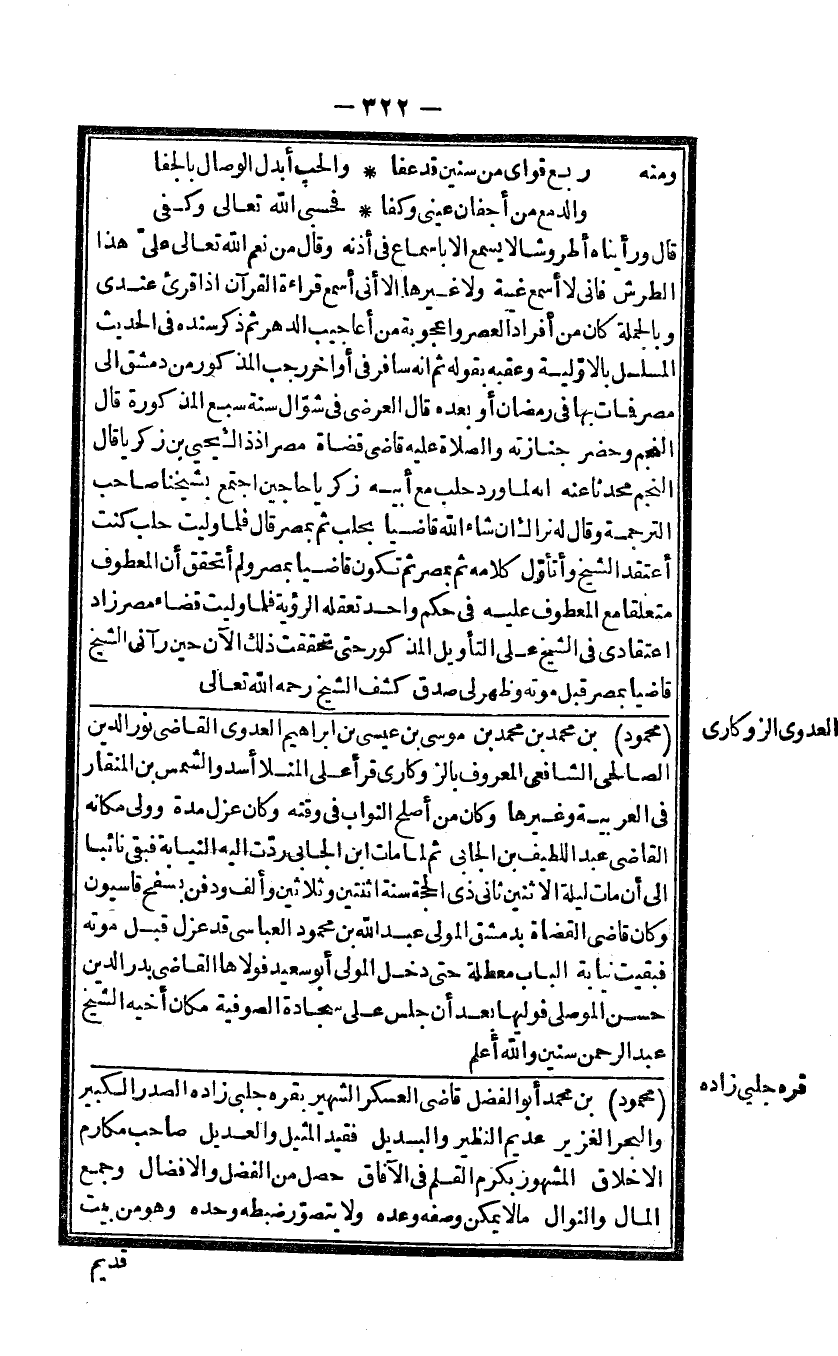 — ٣٢٢ —
ومنه ربع قواى من سنين قد عفا * والحب أبدل الوصال بالجفا
والدمع من أجفان عينى وكفا * فحسبى الله تعالى وكـفى
قال ورأيناه أطروشا لا يسمع الا باسماع فى أذنه وقال من نعم الله تعالى علىّ هذا
الطرش فانى لا أسمع غيبة ولا غيرها الا أنى أسمع قراءة القرآن اذا قرئ عندى
وبالجملة كان من أفراد العصر واعجوبة من أعاجيب الدهر ثم ذكر سنده فى الحديث
المسلسل بالاوّلية وعقبه بقوله ثم انه سافر فى أواخر رجب المذكور من دمشق الى
مصر فمات بها فى رمضان أو بعده قال العرضى فى شوّال سنة سبع المذكورة قال
النجم وحضر جنازته والصلاة عليه قاضى قضاة مصر اذ ذاك يحيى بن زكريا قال
النجم محدثا عنه انه لما ورد حلب مع أبيه زكريا حاجين اجتمع بشيخنا صاحب
الترجمة وقال له نراك ان شاء الله قاضيا بحلب ثم بمصر قال فلما وليت حلب كنت
أعتقد الشيخ وأتأوّل كلامه ثم بمصر ثم تكون قاضيا بمصر ولم أتحقق أن المعطوف
متعلقا مع المعطوف عليه فى حكم واحد تعقله الرؤية فلما وليت قضاء مصر زاد
اعتقادى فى الشيخ على التأويل المذكور حتى تحققت ذلك الآن حين رآنى الشيخ
قاضيا بمصر قبل موته وظهر لى صدق كشف الشيخ رحمه الله تعالى
العدوى الزوكارى
(محمود) بن محمد بن محمد بن موسى بن عيسى بن ابراهيم العدوى القاضى نور الدين
الصالحى الشافعى المعروف بالزوكارى قرأ على المنلا أسد والشمس بن المنقار
فى العربية وغيرها وكان من أصلح النواب فى وقته وكان عزل مدة وولى مكانه
القاضى عبد اللطيف بن الجابى ثم لما مات ابن الجابى ردّت اليه النيابة فبقى نائبا
الى أن مات ليلة الاثنين ثانى ذى الحجة سنة اثنتين وثلاثين وألف ودفن بسفح قاسيون
وكان قاضى القضاة بدمشق المولى عبد الله بن محمود العباسى قد عزل قبل موته
فبقيت نيابة الباب معطلة حتى دخل المولى أبو سعيد فولاها القاضى بدر الدين
حسن الموصلى فوليها بعد أن جلس على سجادة الصوفية مكان أخيه الشيخ
عبد الرحمن سنين والله أعلم
قره جلبى زاده
(محمود) بن محمد أبو الفضل قاضى العسكر الشهير بقره جلبى زاده الصدر الكبير
والبحر الغزير عديم النظير والبديل فقيد المثيل والعديل صاحب مكارم
الاخلاق المشهور بكرم القلم فى الآفاق حصل من الفضل والافضال وجمع
المال والنوال مالا يمكن وصفه وعده ولا يتصوّر ضبطه وحده وهو من بيت
قديم